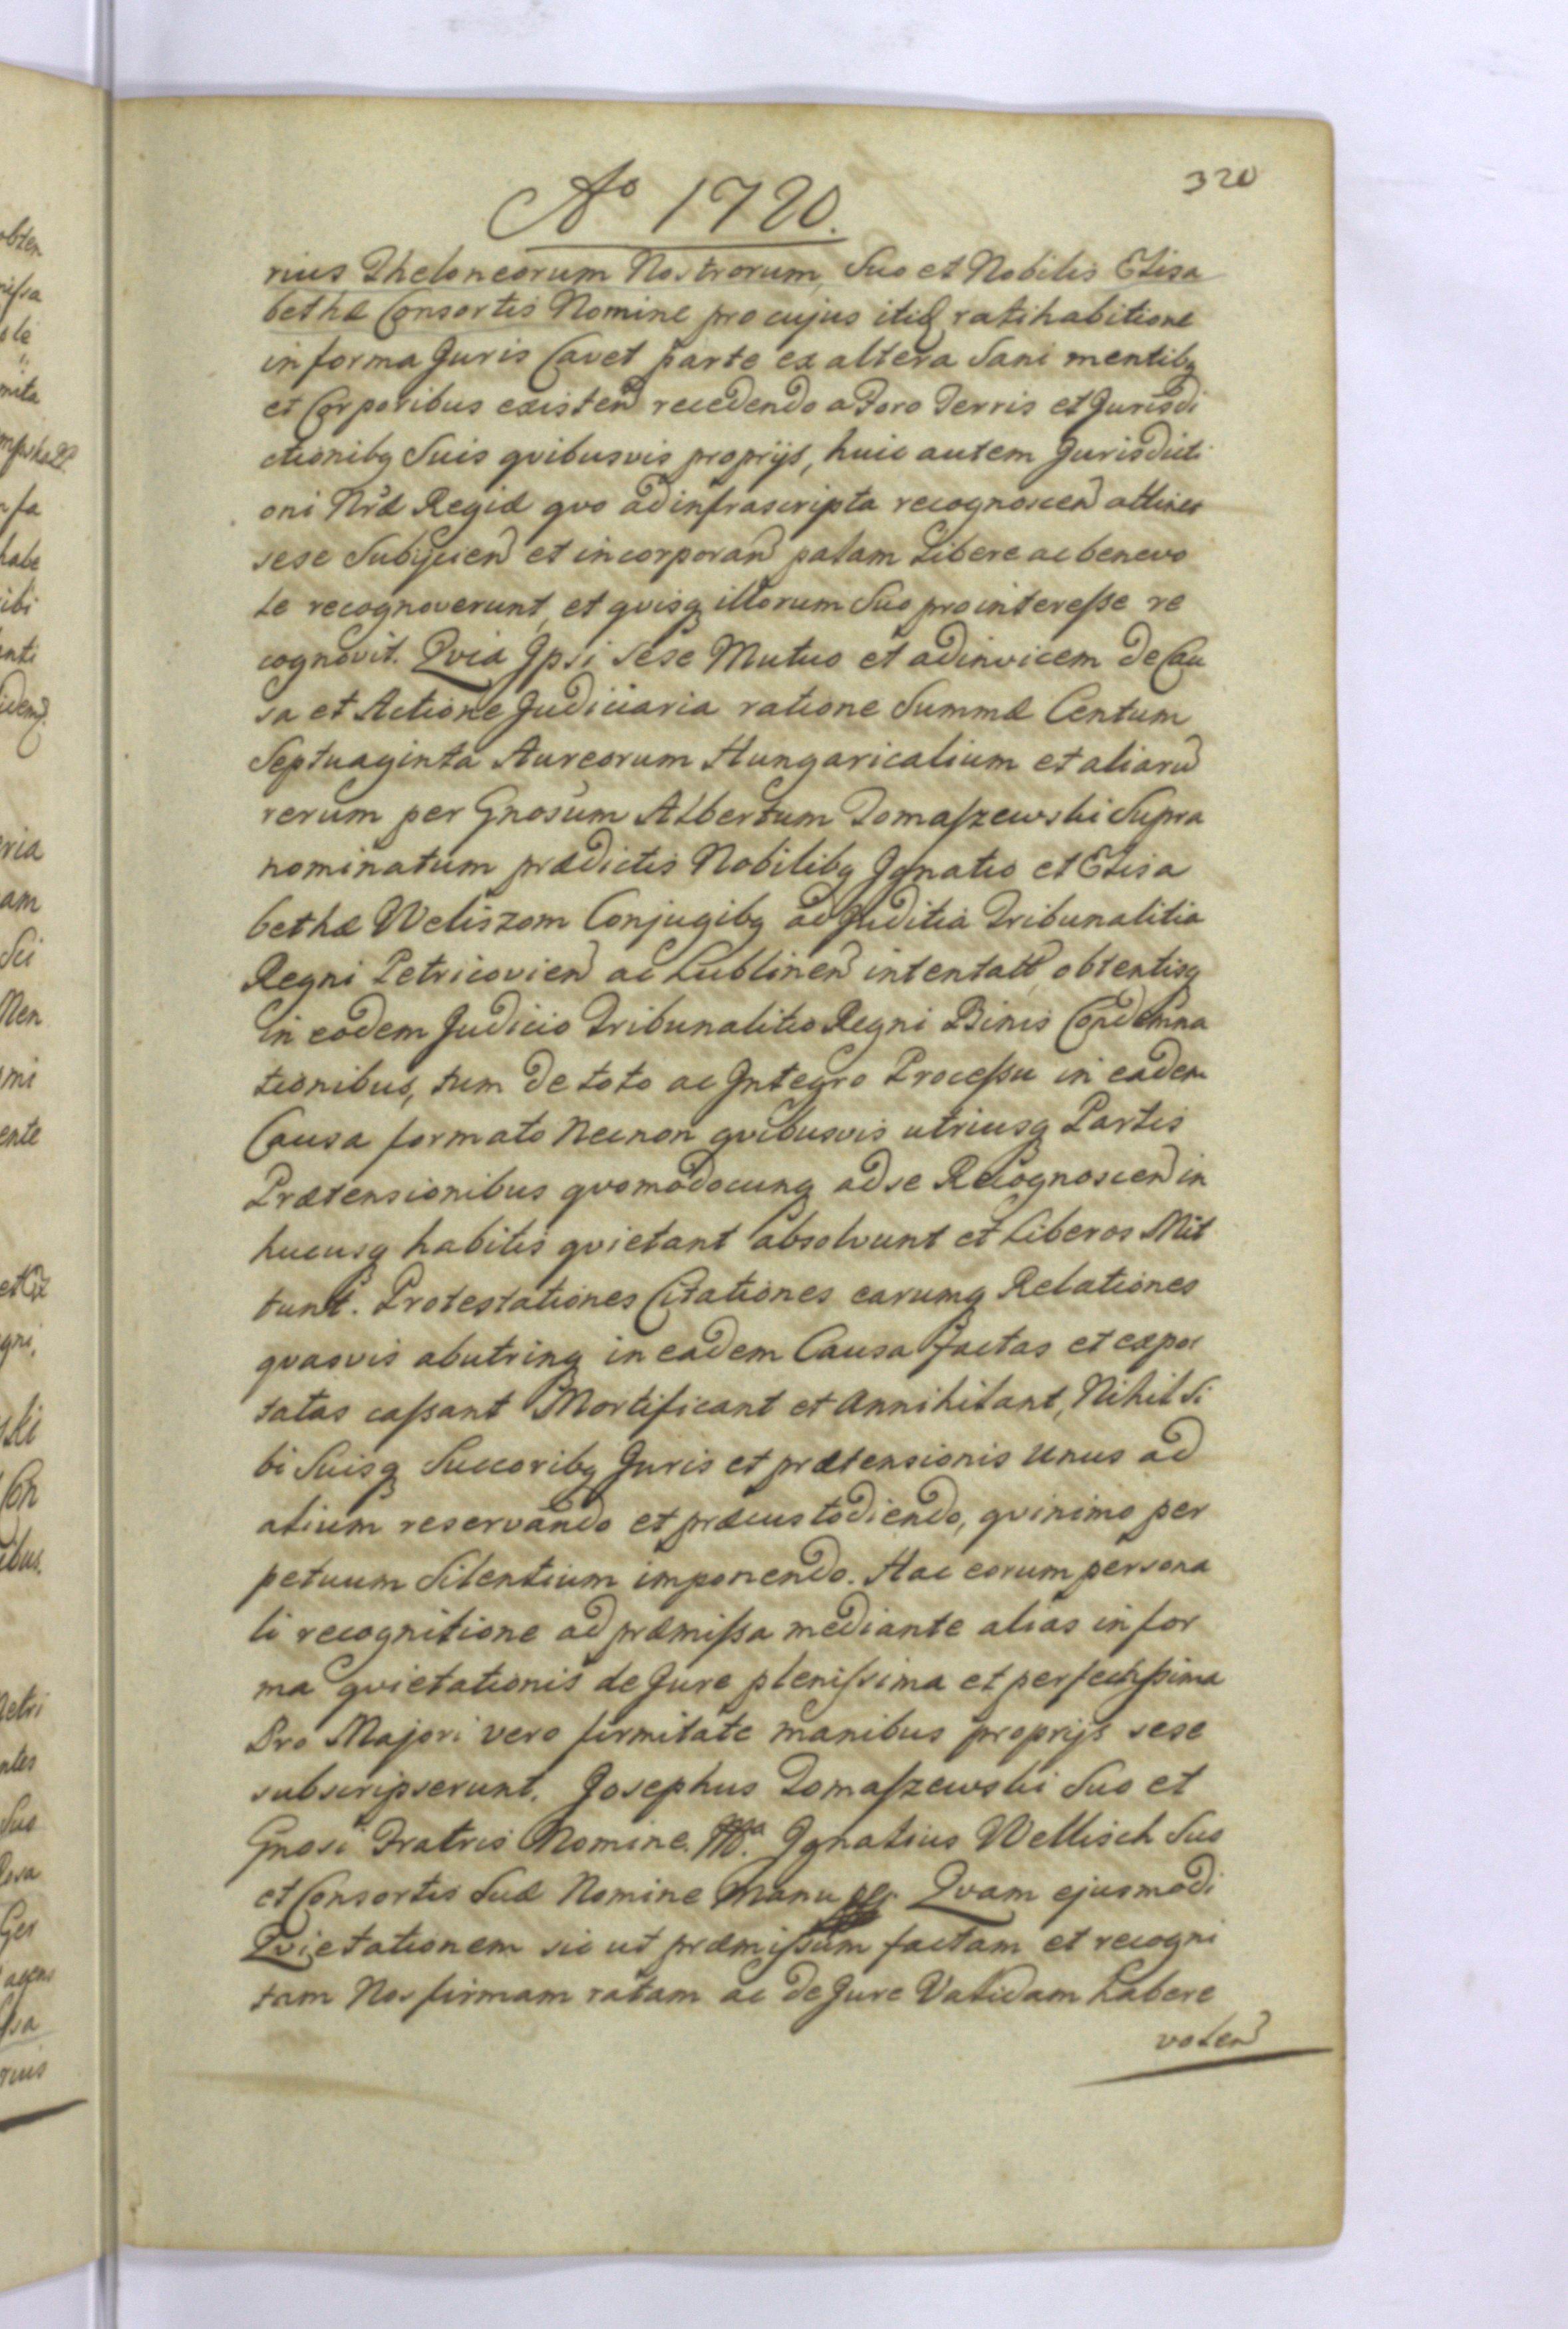 320
Aº 1720.
rius Theloneorum Nostrorum, Suo et Nobilis Elisa
bethæ Consortis Nomine pro cujus itidẽ ratihabitione
in forma Juris Cavet parte ex altera Sani mentibꝫ
et Corporibus existeñ recedendo a Foro Terris et Jurisdi
ctionibꝫ Suis qvibusvis proprijs, huic autem Jurisdicti
oni Nr̃æ Regiæ qvo ad infrascripta recognosceñ attinet
sese Subijcieñ et incorporañ palam Libere ac benevo
le recognoverunt, et qvisqꝫ illorum Suo pro interesse re
cognovit. Qvia Ipsi sese Mutuo et adinvicem de Cau
sa et Actione Judiciaria ratione Summæ Centum
Septuaginta Aureorum Hungaricalium et aliarũ
rerum per Gnosum Albertum Domaszewski Supra
nominatum prædictis Nobilibꝫ Ignatio et Elisa
bethæ Weliszom Conjugibꝫ ad Juditia Tribunalitia
Regni Petricovieñ ac Lublineñ intentatt, obtentisqꝫ
in eodem Judicio Tribunalitio Regni Binis Condemna
tionibus, tum de toto ac Integro Processu in eadem
Causa formato necnon qvibusvis utriusqꝫ Partis
Prætensionibus qvomodocunqꝫ ad se Recognosceñ in
hucusqꝫ habitis qvietant absolvunt et Liberos Mit
tunt. Protestationes Citationes earumqꝫ Relationes
qvasvis abutrinqꝫ in eadem Causa factas et expor
tatas cassant Mortificant et Annihilant, Nihil Si
bi Suisqꝫ Succoribꝫ Juris et prætensionis unus ad
alium reservando et præcustodiendo, qvinimo per
petuum Silentium imponendo. Hac eorum persona
li recognitione ad præmissa mediante alias in for
ma qvietationis de Jure plenissima et perfectissima
Pro Majori vero firmitate manibus proprijs sese
subscripserunt. Josephus Domaszewski Suo et
Gnosi Fratris Nomine. Ignatius Wellisch Suo
et Consortis Suæ Nomine Manu pp. Qvam ejusmodi
Qvietationem sic ut præmissum factam et recogni
tam Nos firmam ratam ac de Jure Validam habere
voleñ